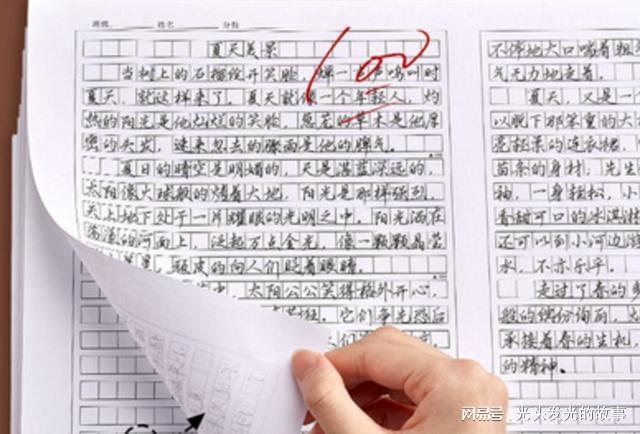 班级 姓名 分数
100
夏天美景
当树上的石榴绽开笑脸,蝉一声声鸣叫时
夏天,就这样来了。夏天就像一个年轻人,灼
热的阳光是他灿烂的笑脸,葱茏的草木是他厚
密的头发,速来忽去的骤雨是他的脾气。
夏日的晴空是明媚的,天是湛蓝深远的,
太阳像火球般的烤着大地,阳光是那样强烈,
天上地下处于一片耀眼的光明之中。阳光洒在
的河面上,泛起万点金光,像一颗颗晶莹
皮的向人们眨着眼睛。
中,太阳公公笑得格外开心,
它们争先恐后
不停地大口喘着粗
气无力地走着。
夏天,又是一
以脱下那笨重的大
亮轻柔的连衣裙,
苗条的身材,先生
袖,一身轻松,小
香甜可口的冰淇淋
还可以到小河边游
水,不亦乐乎。
走过了春的
般的缤纷绚丽,
承接着春的生机,
的精神。
网易号 | 光头发光的故事